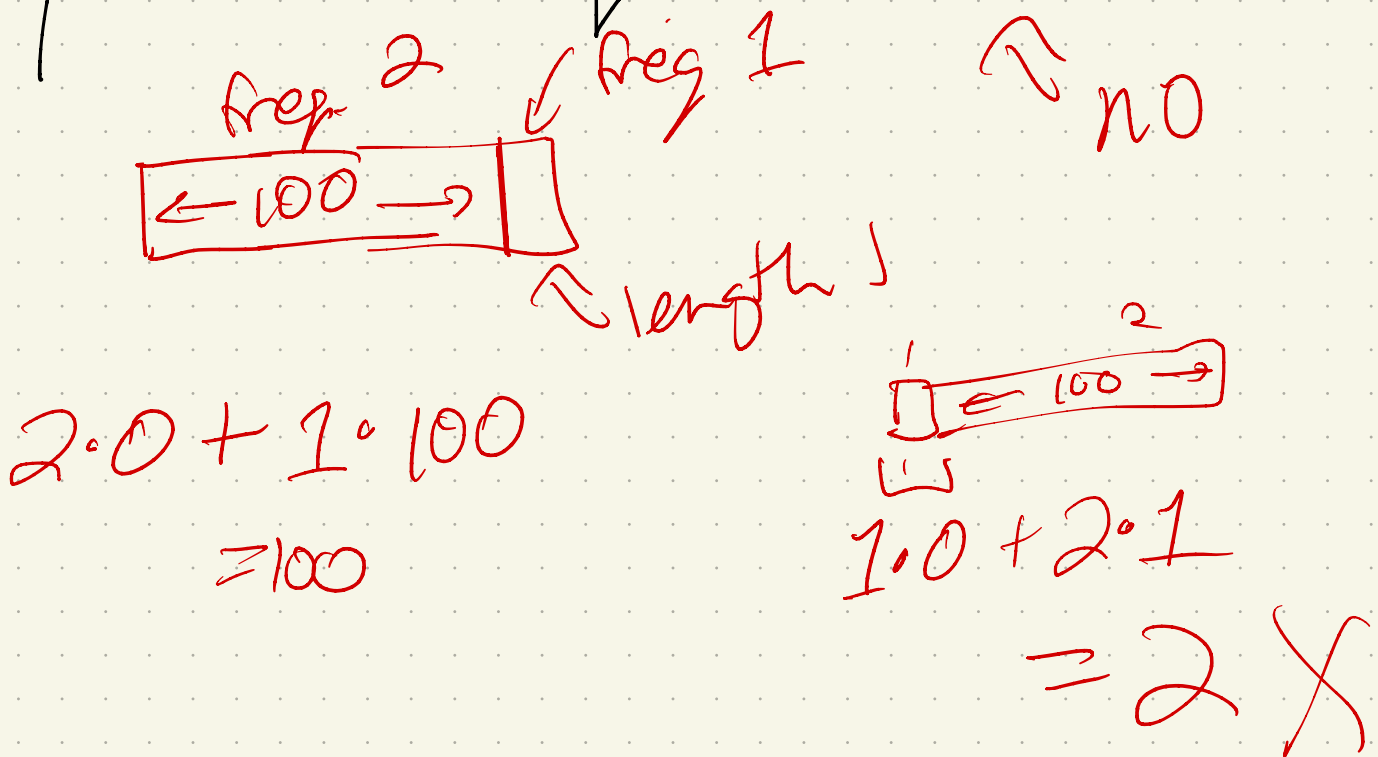 freq 2
freq 1
no
← 100 →
length 1
2
1
← 100 →
1
2·0 + 1·100
=100
1·0 + 2·1
= 2 X